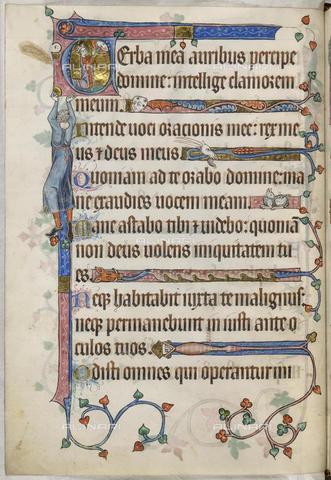 Verba mea auribus percipe
domine: intellige clamorem
meum.
Intende voci orationis mee: rex me
us & deus meus.
Quoniam ad te orabo domine: ma
ne exaudies vocem meam.
Mane astabo tibi & videbo: quoniā
non deus volens iniquitatem tu
es.
Neq habitabit iuxta te malignus:
neq permanebunt iniusti ante o
culos tuos.
Odisti omnes qui operantur ini
ALINARI
ALINARI
ALINARI
ALINARI